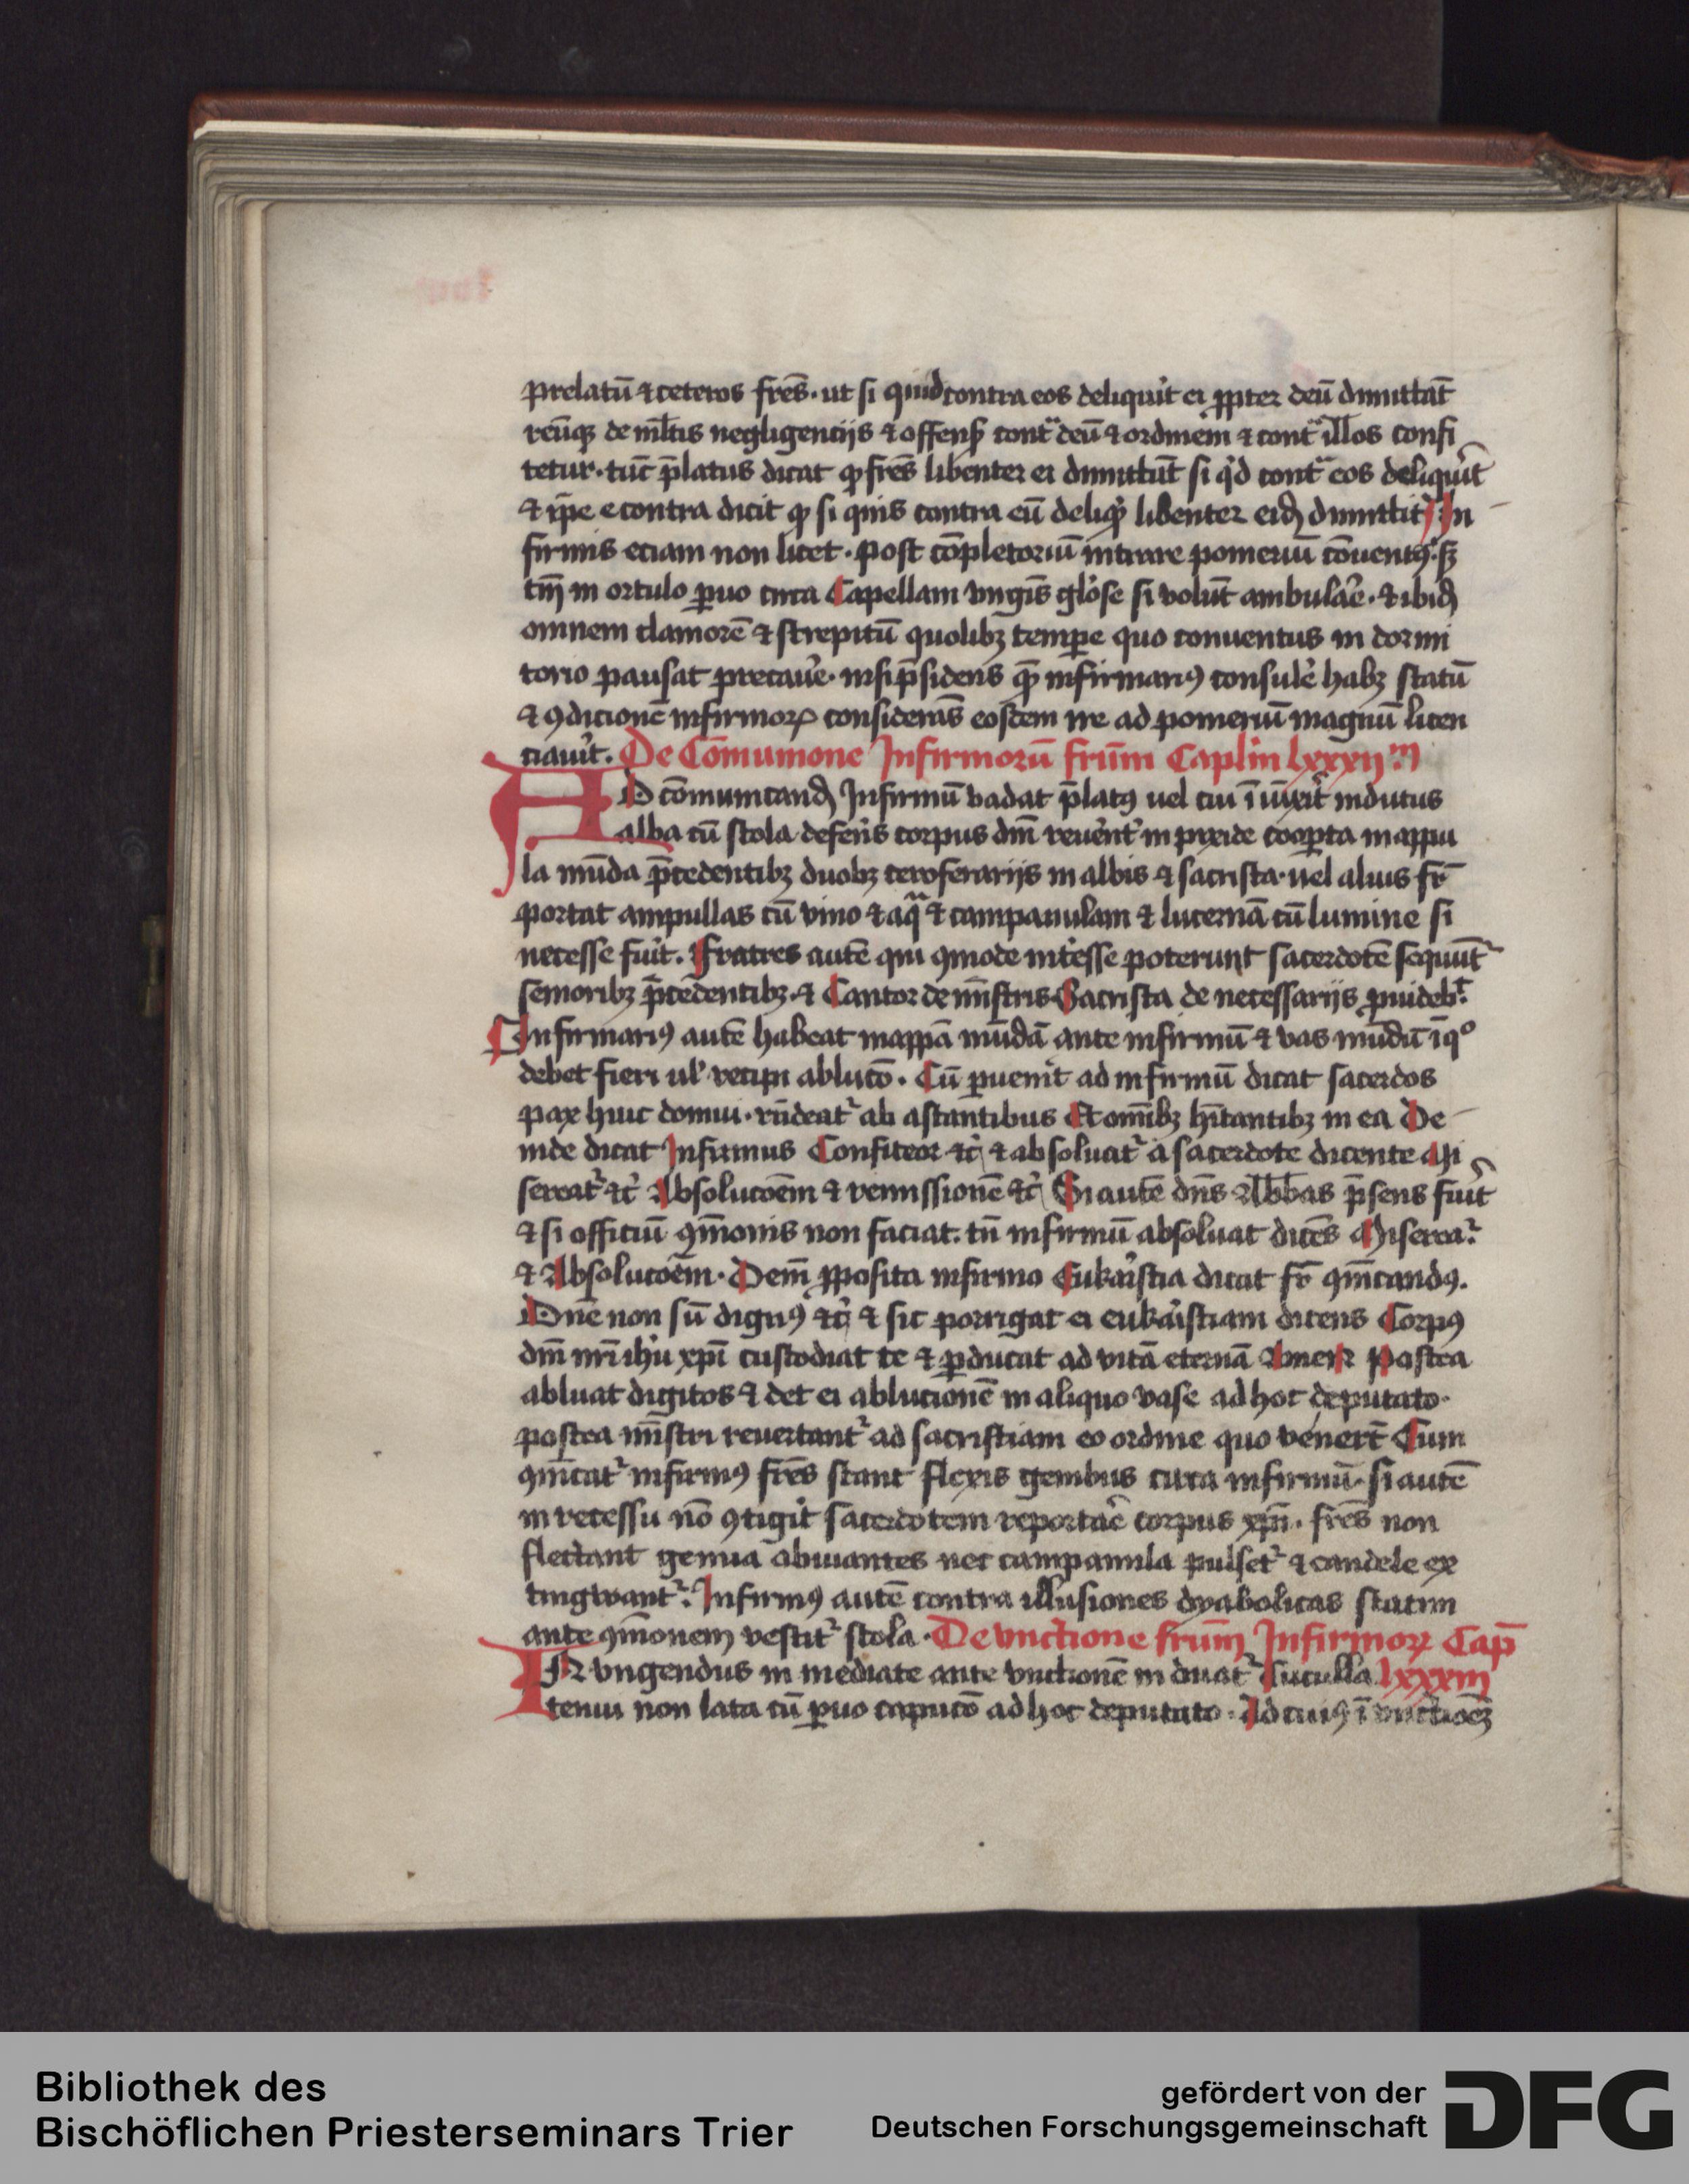 prelatū ⁊ ceteros fr̄es. ut si quid contra eos deliquit ei ꝓpter deū dimittāt
reūqꝫ de ml̄tis negligentijs ⁊ offens̄ contᵃ deū ⁊ ordinem ⁊ contᵃ illos confi
tetur. tūc p̄latus dicat qꝫ fr̄es libenter ei dimittūt si qͥd contᵃ eos deliqu̓it
⁊ ip̄e e contra dicit qꝫ si quis contra eū deliqͥ libenter eid̄ dimittit In
firmis eciam non licet. post cōpletoriū intrare pomeriū cōuentꝰ. sꝫ
tm̄ in ortulo ꝑuo circa Capellam virgīs gl̓ose si volūt ambulae̓. ⁊ ibid̄
omnem clamorē ⁊ strepitū quolibꝫ tempe quo conuentus in dormi
torio pausat precaue̓. nisi p̄sidens qꝫ infirmariꝰ consule̓ habꝫ statū
⁊ ꝯdicionē infirmoꝝ considerās eosdem ire ad pomeriū magnū licen
ciaui̓t. De Cōmunione Infirmorū frūm Caplm̄ lxxxijᵐ
AD cōmunicand̄ Infirmū vadat p̄latꝰ uel cui īiūxit̓ indutus
alba cū stola defere̓s corpus dn̄i reue̓nt̓ in pixide coopta mappu
la mūda p̄cedentibꝫ duobꝫ ceroferarijs in albis ⁊ sacrista. uel alius fr̄
portat ampullas cū vino ⁊ aqᵃ ⁊ campanulam ⁊ lucernā cū lumine si
necesse fui̓t. Fratres autē qui ꝯmode inte̓sse poterunt sacerdotē sequūt̓
senioribꝫ p̄cedentibꝫ. ⁊ Cantor de mīstris Sacrista de necessarijs ꝓuideb̓t.
Infirmariꝰ autē habeat mappā mūdā ante infirmū ⁊ vas mūdū ī qͦ
debet fieri ul̓ recipi ablutō. Cū ꝑuenit̓ ad infirmū dicat sacerdos
pax huic domui. rn̄deat̓ ab astantibus Et om̄ibꝫ hītantibꝫ in ea De
inde dicat Infirmus Confiteor ⁊c̓ ⁊ absoluat̓ a sacerdote dicente Mi
sereat̓ ⁊c̓ Absolucōem ⁊ remissionē ⁊c̓ Si autē dn̄s Abbas p̄sens fui̓t
⁊ si officiū ꝯmōnis non faciat. tn̄ infirmū absoluat dicēs Miserea̓t
⁊ Absolucōem. Dein̄ ꝓposita infirmo Eukar̓istia dicat fr̄ ꝯmīcandꝰ.
Dn̄e non sū dignꝰ ⁊c̓ ⁊ sic porrigat ei eukar̓istiam dicens Corpꝰ
dn̄i nr̄i ihu̓ xp̄i custodiat te ⁊ ꝑducat ad vitā eternā Amen Postea
abluat digitos ⁊ det ei ablucionē in aliquo vase ad hoc deputato.
postea mīstri reuertant̓ ad sacristiam eo ordine quo venert̄ Cum
ꝯmīcat̓ infirmꝰ fr̄es stant flexis genibus circa infirmū. si autē
in recessu nō ꝯtigit̓ sacerdotem reportae̓ corpus xp̄i. fr̄es non
flectant genua obuiantes nec campanula pulset̓ ⁊ candele ex
tingwant̓. Infirmꝰ autē contra illusiones dyabolicas statim
ante ꝯmōnem vestit̓ stola. De vnctione frūm Infirmoꝝ Cap̄
FR vngendus in mediate ante vnctionē induat̓ Cuculla lxxxiij
tenui non lata cū ꝑuo caputo ad hoc deputato. Ad cuiꝰ ī vnctōeꝫ
Bibliothek des
Bischöflichen Priesterseminars Trier
gefördert von der
Deutschen Forschungsgemeinschaft
DFG